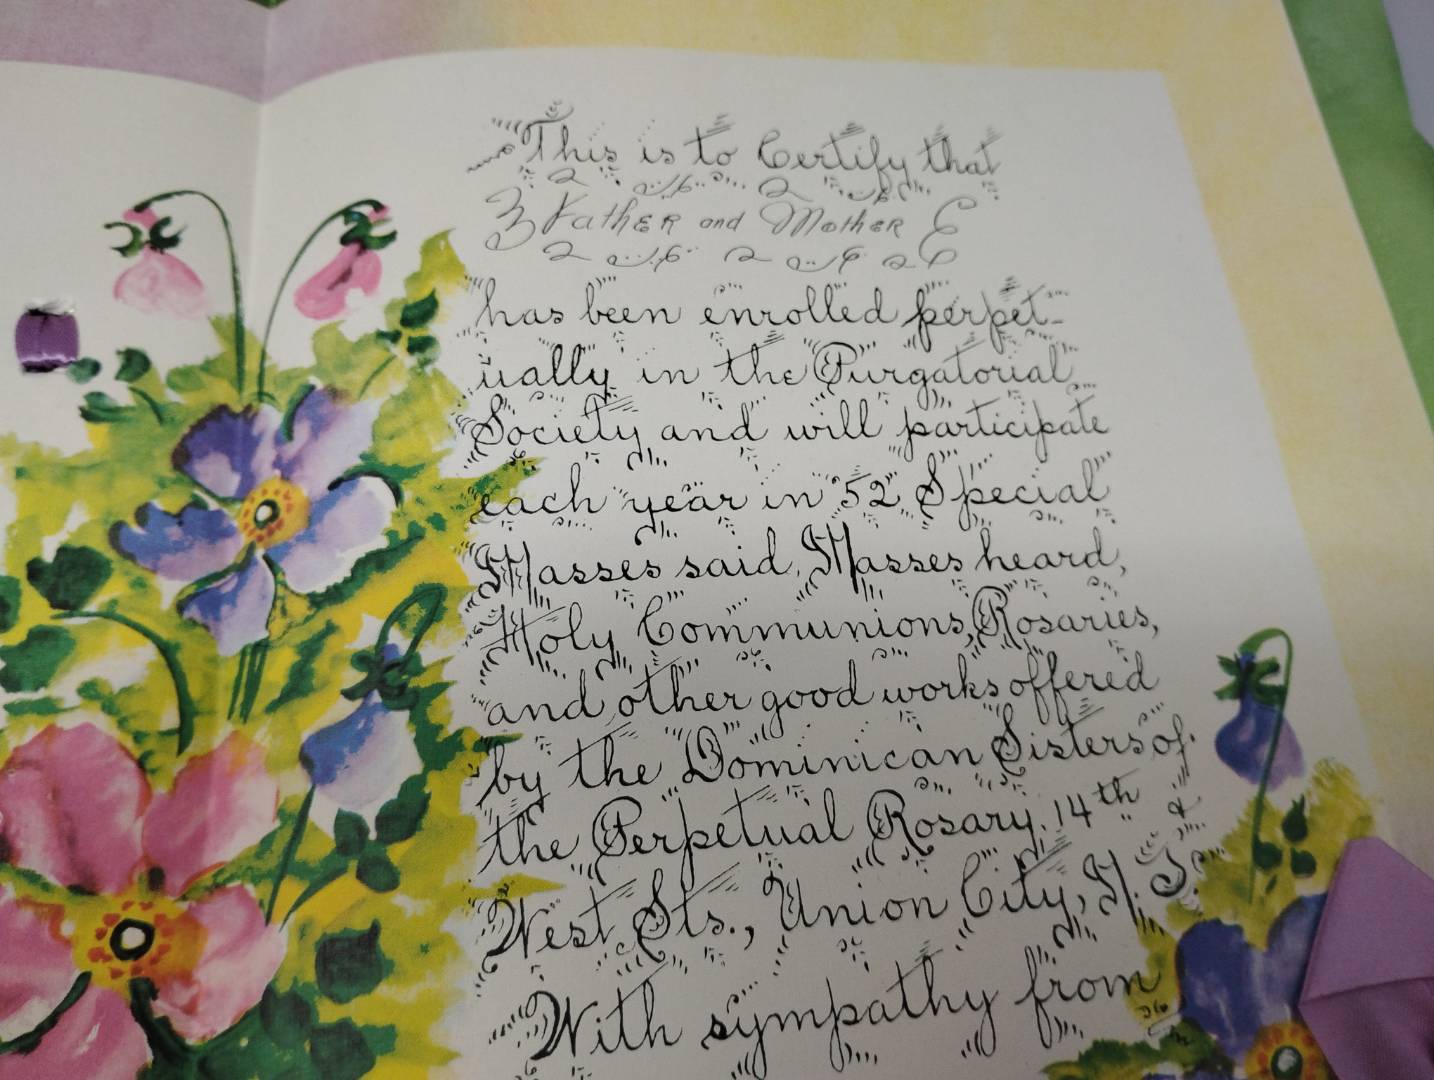 This is to Certify that
Father and Mother
has been enrolled perpet-
ually in the Purgatorial
Society and will participate
each year in 52 Special
Masses said, Masses heard,
Holy Communions, Rosaries,
and other good works offered
by the Dominican Sisters of
the Perpetual Rosary, 14th &
West Sts., Union City, N. J.
With sympathy from